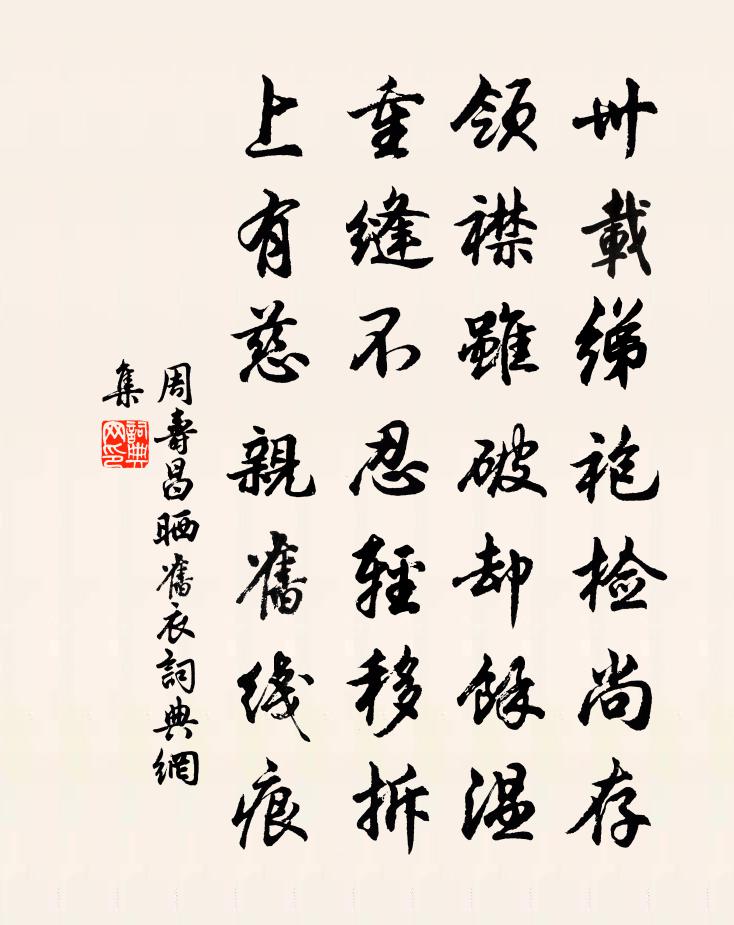 卅載綈袍檢尚存
領襟雖破却餘温
重縫不忍輕移拆
上有慈親舊綫痕
周壽昌晒舊衣詞典網
集
詞典
网印